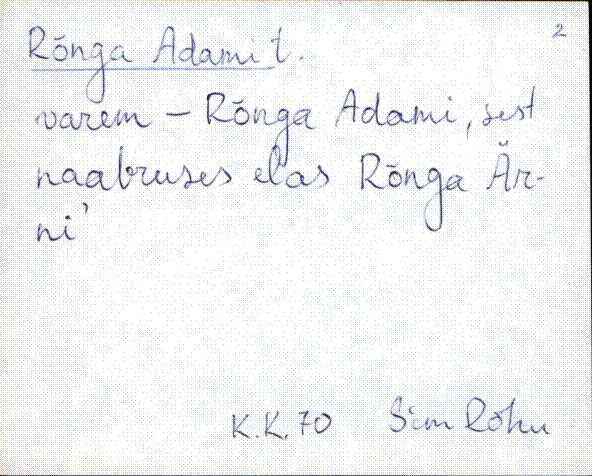 2
Rõnga Adami t.
varem – Rõnga Adami, sest
naabruses elas Rõnga Är-
ni'
K.K. 70 Sim Rõhu